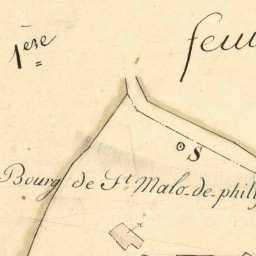 1ère
feu
S
Bourg de St. Malo-de-phily